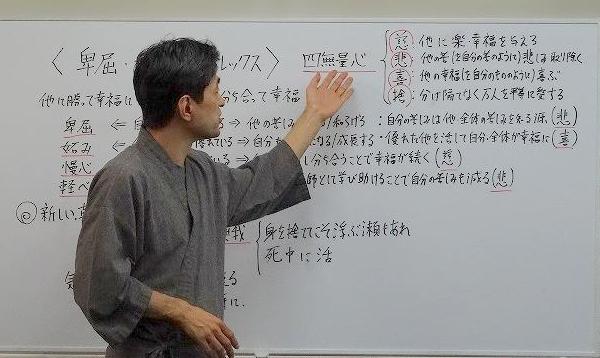 〈卑屈・ レックス〉 四無量心
慈:他に楽・幸福を与える
悲:他の苦(を自分の苦のように)悲しみ取り除く
喜:他の幸福(を自分のもののように)喜ぶ
捨:分け隔てなく万人を平等に愛する
他に勝って幸福に 分ち合って幸福
卑屈 ← 自 ⇒ 他の苦しみ :自分の苦しみは他・全体の苦しみを知る源(悲)
妬み ← ている ⇒ 自分も 成長する・優れた他を通して自分・全体が幸福に(喜)
慢心 ← いる ⇒ し分ち合うことで幸福が続く(慈)
軽べ 師として学び助けることで自分の苦しみも減る(悲)
◎新しい 我
身を捨ててこそ浮ぶ瀬もあれ
死中に活
気 る
に.